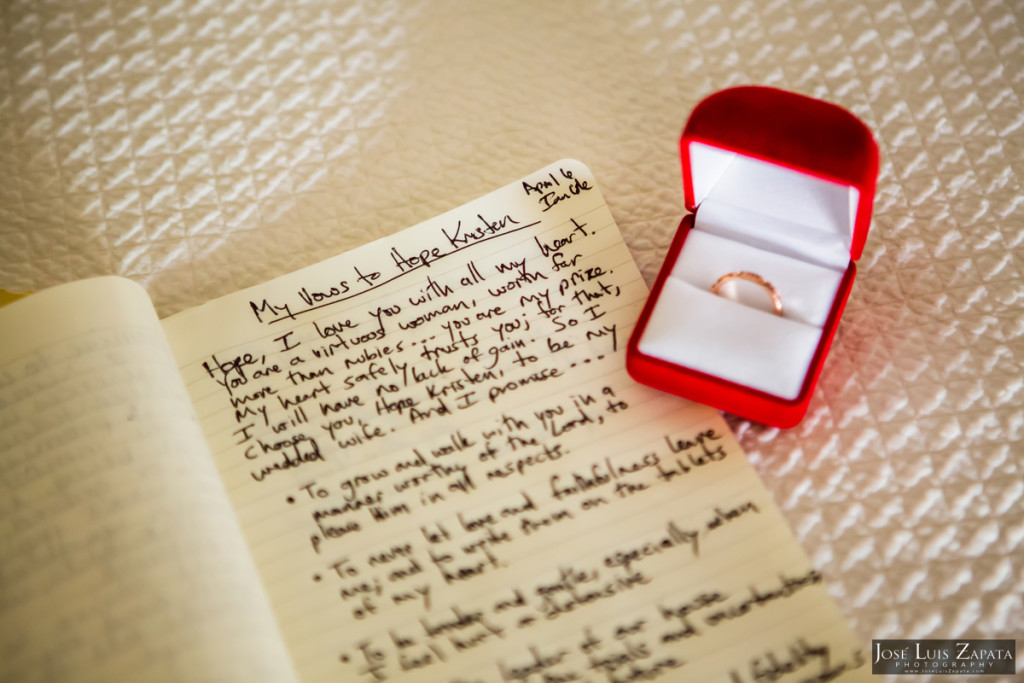 April 6
Ian Cole
My Vows to Hope Kristen
Hope, I love you with all my heart.
You are a virtuous woman, worth far
more than rubies... you are my prize.
My heart safely trusts you; for that,
I will have no lack of gain. So I
choose you, Hope Kristen, to be my
wedded wife. And I promise...
• To grow and walk with you in a
manner worthy of the Lord, to
please Him in all respects.
• To never let love and faithfulness leave
me; and to write them on the tablets
of my heart.
• To be tender and gentle, especially when
I feel hurt or defensive
leader of our house
and
JOSÉ LUIS ZAPATA
PHOTOGRAPHY
www.JoseLuisZapata.com